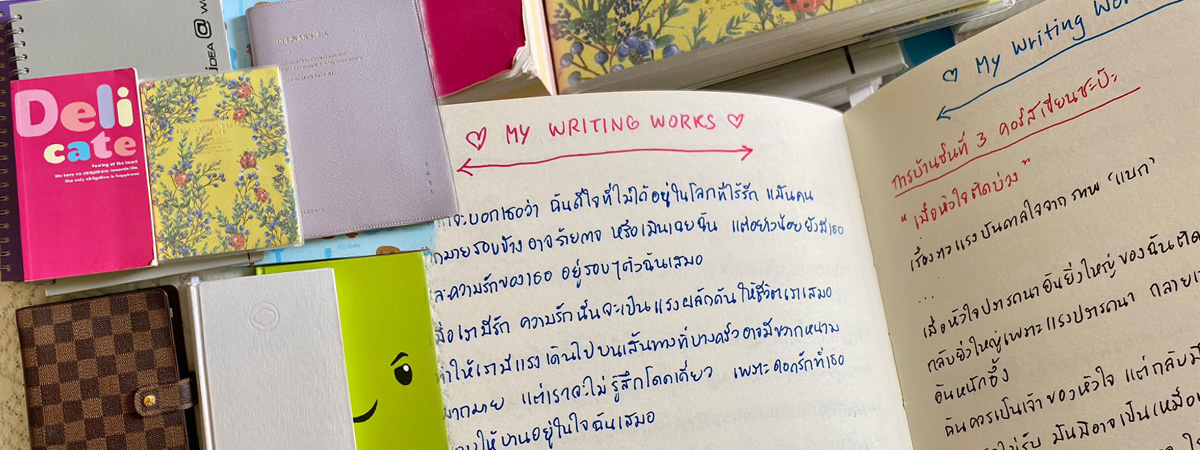 IDEA @ W
Deli
cate
Feeling of the heart
We have no obligations towards life.
Our only obligation is happiness
MY WRITING WORKS
จะบอกเธอว่า ฉันดีใจที่ไม่ได้อยู่ในโลกที่ไร้รัก แม้นคน
มายรอบข้างอาจร้ายกาจ หรือเมินเฉยฉัน แต่อย่างน้อยยังมีเธอ
ละความรักของเธอ อยู่รอบๆตัวฉันเสมอ
มื่อเรามีรัก ความรักนั้นจะเป็นแรงผลักดันให้ชีวิตเราเสมอ
ทำให้เรามีแรงเดินไปบนเส้นทางที่บางครั้งอาจมีขวากหนาม
มากมาย แต่เราจะไม่รู้สึกโดดเดี่ยว เพราะดอกรักที่เธอ
ให้บานอยู่ในใจฉันเสมอ
My Writing Wor
การบ้านชิ้นที่ 3 คอร์สเขียนชะป๊ะ
"เมื่อหัวใจติดบ่วง"
เรื่องราวแรงบันดาลใจจากภาพ 'แบก'
...
เมื่อหัวใจปรารถนาอันยิ่งใหญ่ของฉันติด
กลับยิ่งใหญ่เพราะแรงปรารถนา กลายเ
อันหนักอึ้ง
ฉันควรเป็นเจ้าของหัวใจ แต่กลับมี
มันมิอาจเป็นเหมือ